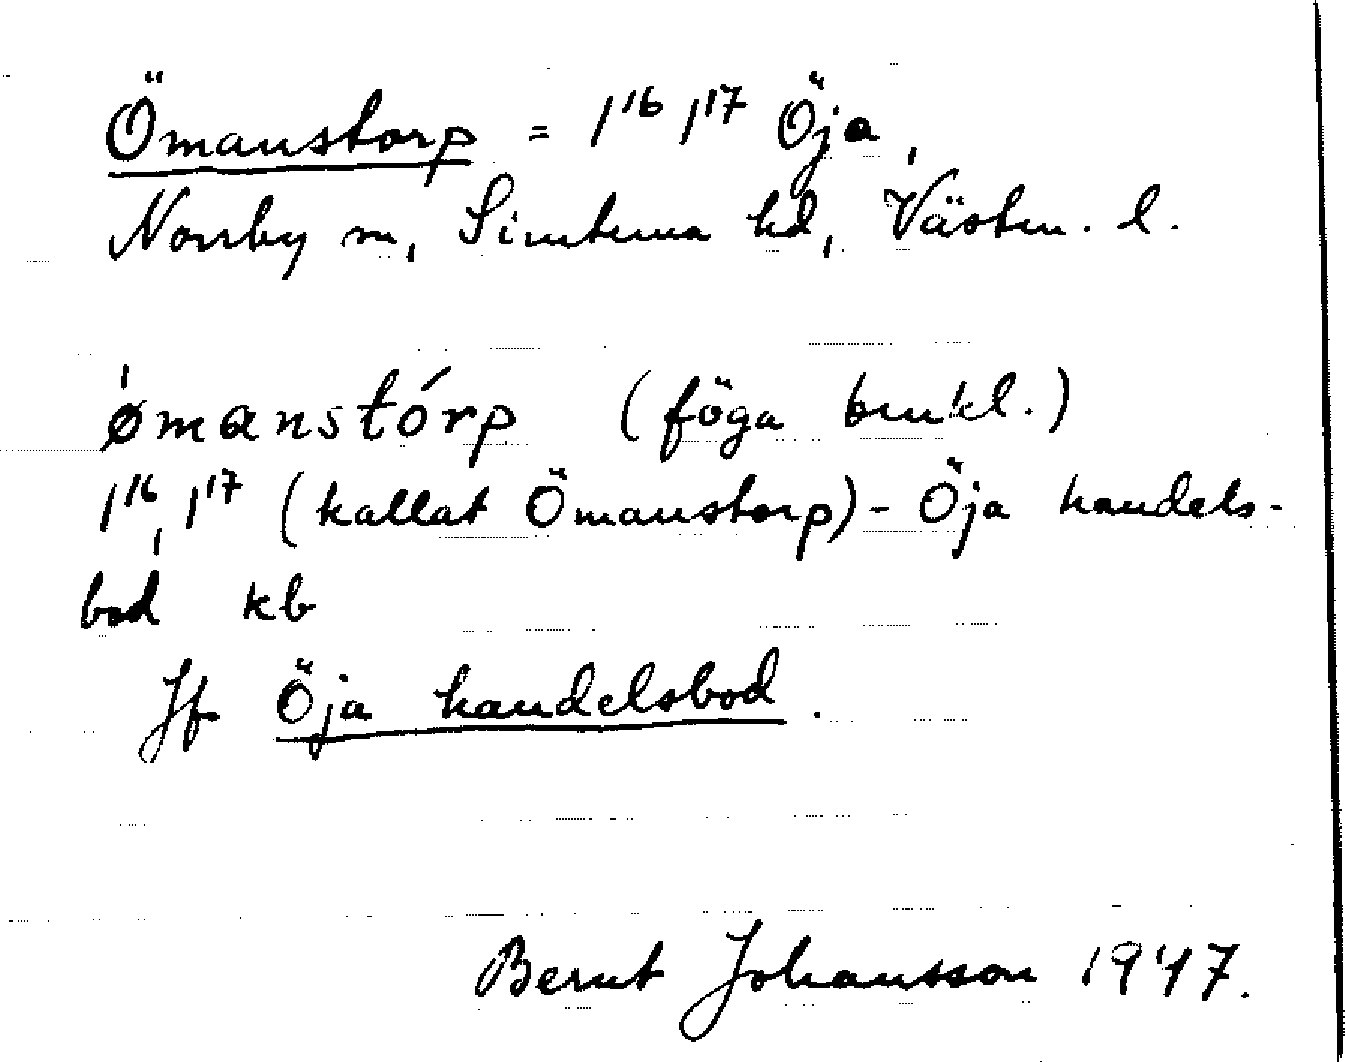 Ömanstorp = 1¹⁶ 1¹⁷ Öja,
Norrby sn, Simtuna hd, Västm. l.
ømanstórp (föga brukl.)
1¹⁶, 1¹⁷ (kallat Ömanstorp) - Öja handels-
bod kb
Jf Öja handelsbod.
Bernt Johansson 1947.